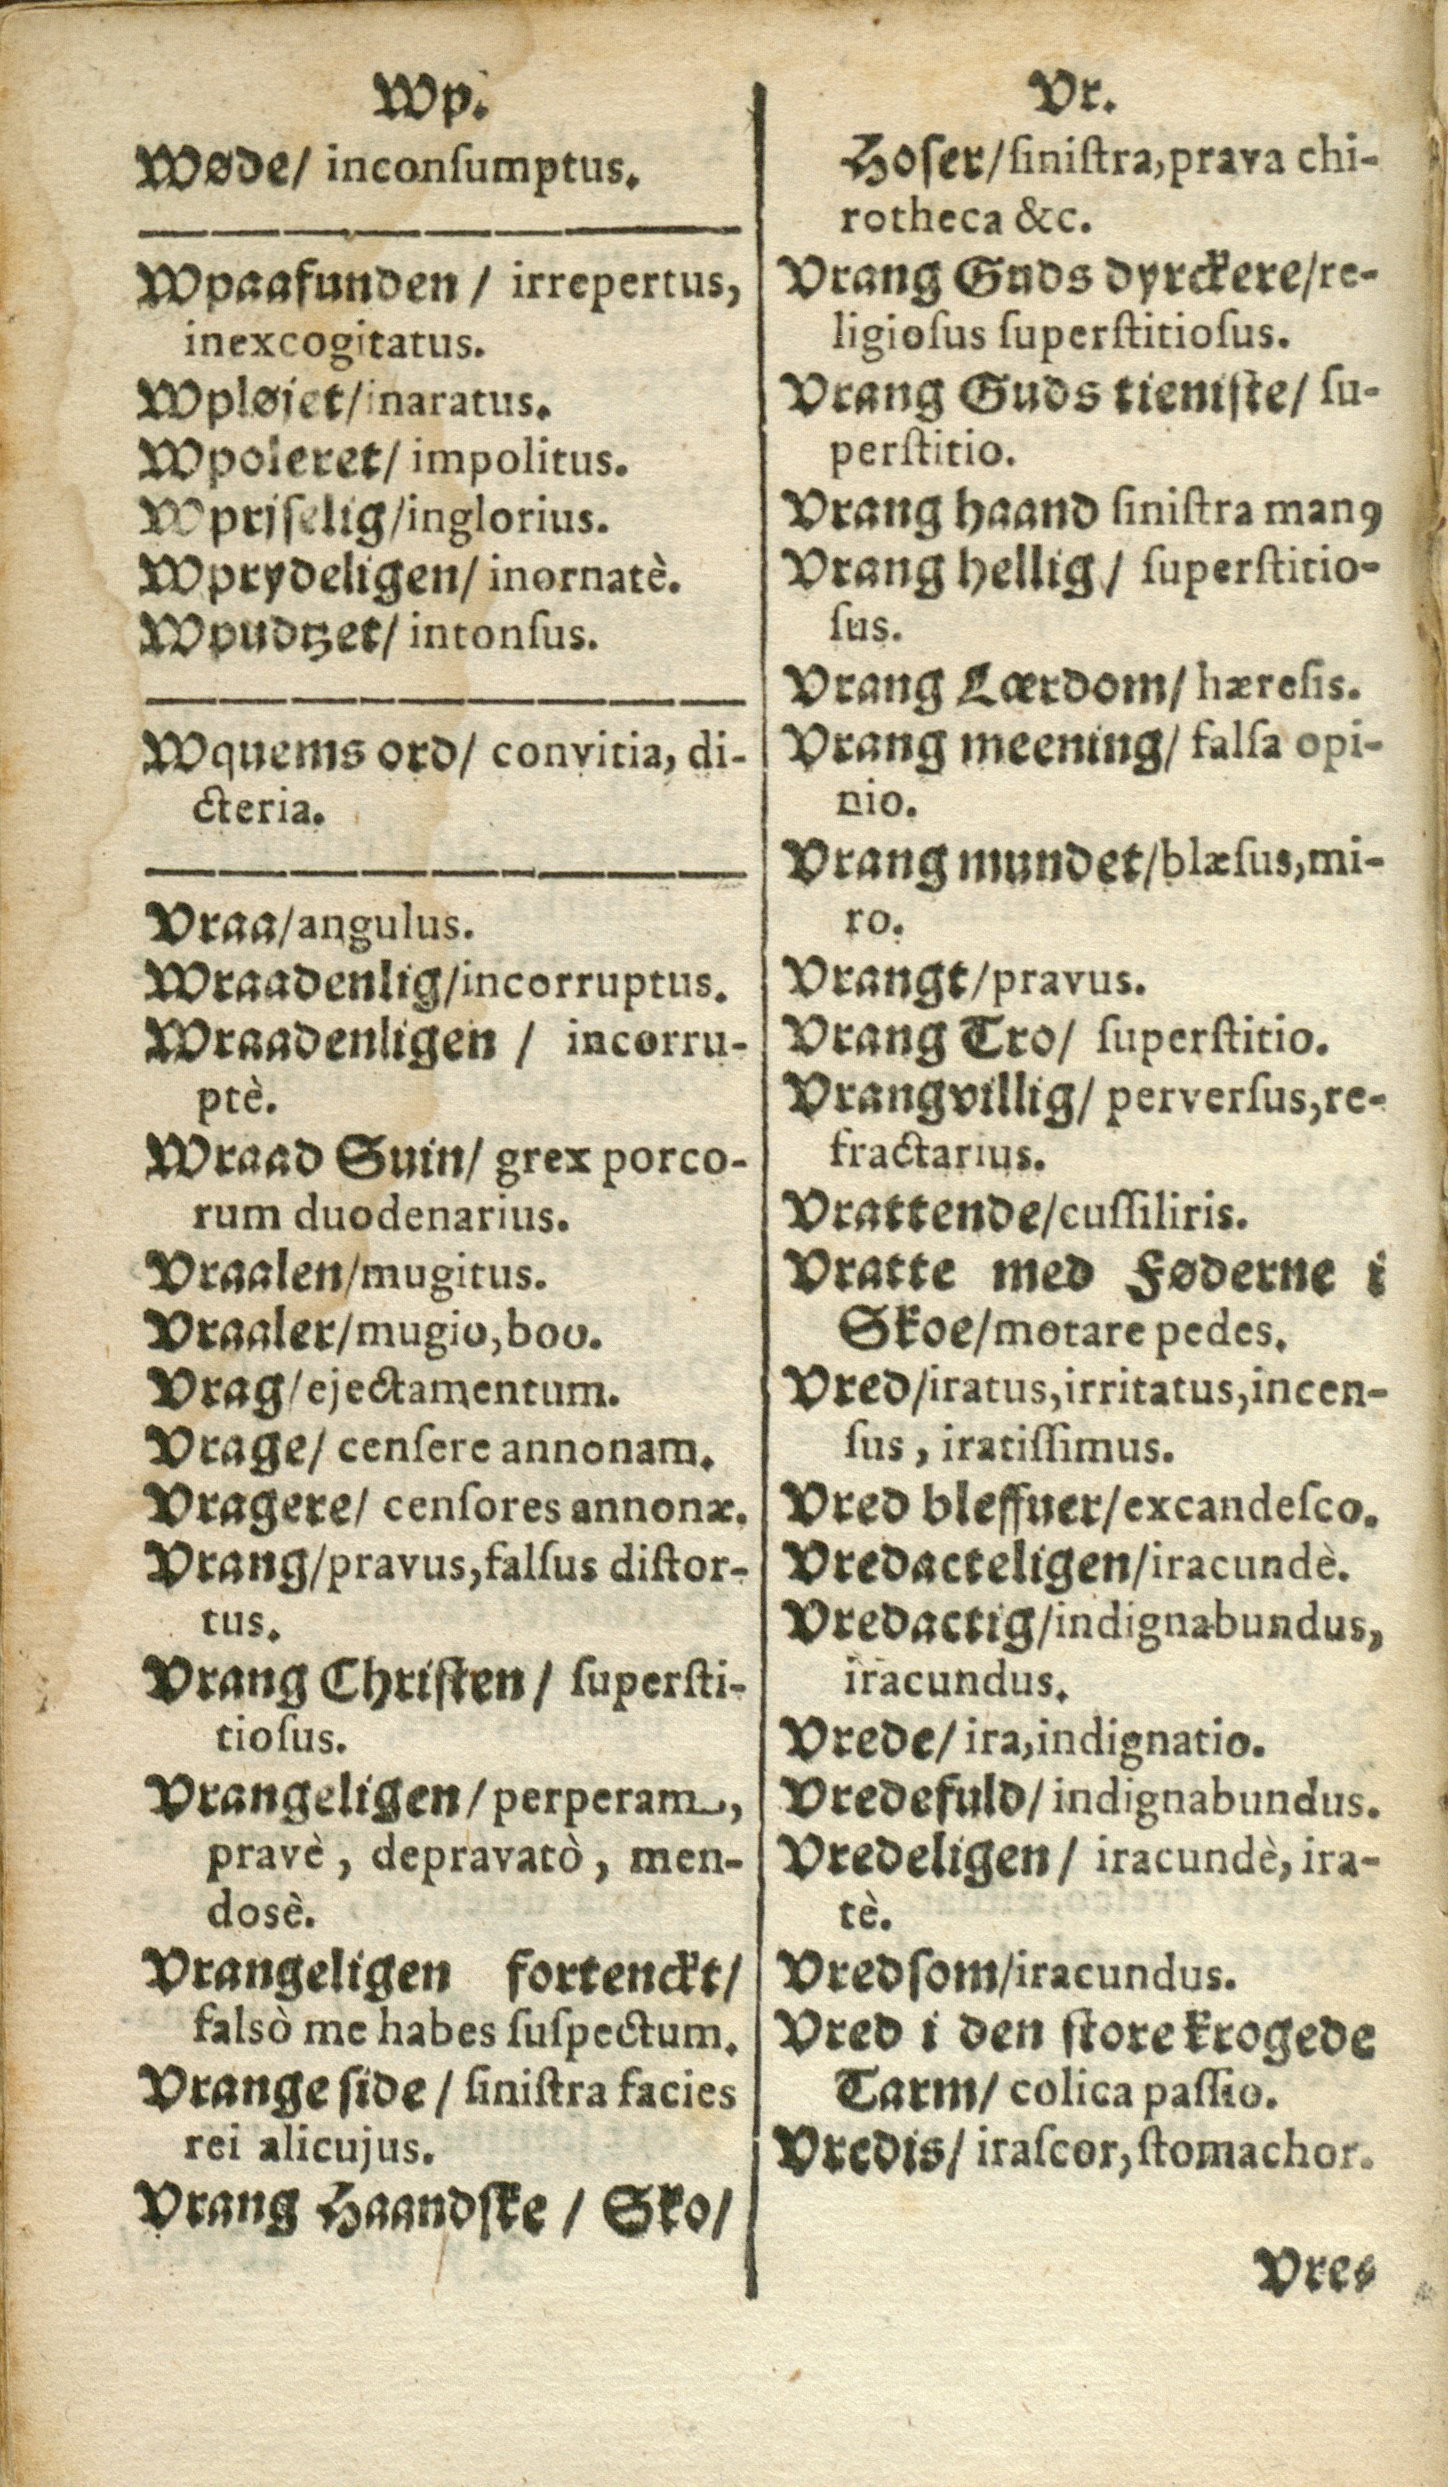 Wp.
Wøde/ inconſumptus.
Wpaafunden / irrepertus,
inexcogitatus.
Wpløjet/inaratus.
Wpoleret/ impolitus.
Wprjſelig/inglorius.
Wprydeligen/ inornatè.
Wpudtzet/ intonſus.
Wquems ord/ convitia, di-
cteria.
Vraa/angulus.
Wraadenlig/incorruptus.
Wraadenligen / incorru-
ptè.
Wraad Suin/ grex porco-
rum duodenarius.
Vraalen/mugitus.
Vraaler/mugio,boo.
Vrag/ejectamentum.
Vrage/ cenſere annonam.
Vragere/ cenſores annonæ.
Vrang/pravus,falſus diſtor-
tus.
Vrang Chriſten / ſuperſti-
tioſus.
Vrangeligen/perperam,
pravè, depravatò, men-
dosè.
Vrangeligen fortenckt/
falsò me habes ſuſpectum.
Vrange ſide / ſiniſtra facies
rei alicujus.
Vrang Haandſke / Sko/
Vr.
Hoſer/ſiniſtra,prava chi-
rotheca &c.
Vrang Guds dyrckere/re-
ligioſus ſuperſtitioſus.
Vrang Guds tieniſte/ ſu-
perſtitio.
Vrang haand ſiniſtra manꝰ
Vrang hellig/ ſuperſtitio-
ſus.
Vrang Lærdom/ hæreſis.
Vrang meening/ falſa opi-
nio.
Vrang mundet/blæſus,mi-
ro.
Vrangt/pravus.
Vrang Tro/ ſuperſtitio.
Vrangvillig/ perverſus,re-
fractarius.
Vrattende/cuſſiliris.
Vratte med Føderne i
Skoe/motare pedes.
Vred/iratus,irritatus,incen-
ſus, iratiſſimus.
Vred bleffuer/excandeſco.
Vredacteligen/iracundè.
Vredactig/indignabundus,
iracundus.
Vrede/ ira,indignatio.
Vredefuld/ indignabundus.
Vredeligen/ iracundè, ira-
tè.
Vredſom/iracundus.
Vred i den ſtore krogede
Tarm/ colica paſſio.
Vredis/ iraſcor,ſtomachor.
Vres